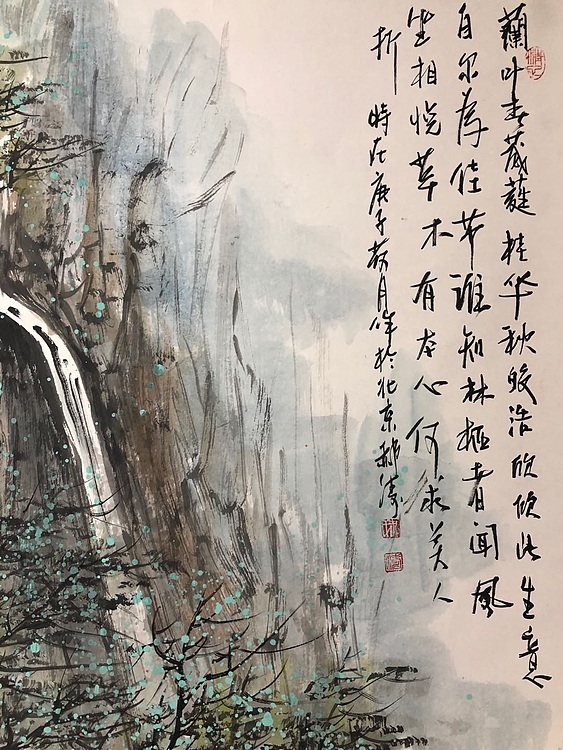 蘭叶春葳蕤桂华秋皎洁欣欣此生意
自尔為佳节谁知林栖者闻風
坐相悦草木有本心何求美人
折
時在庚子月作於北京郝